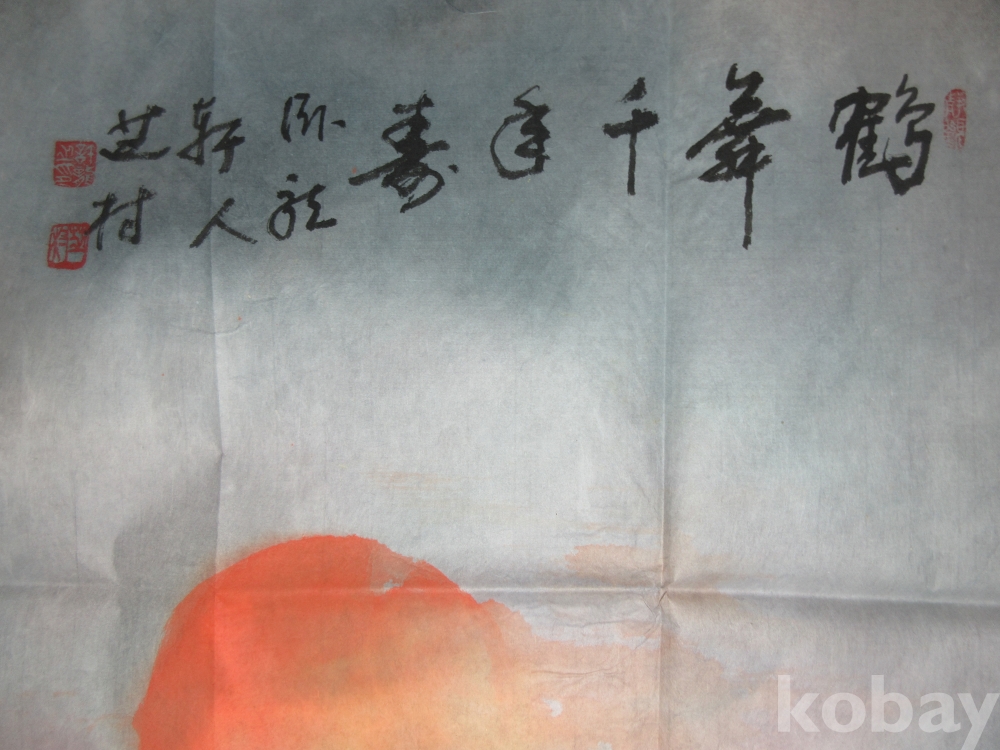 鶴舞千年壽
臥龍
軒人
芝村
kobay